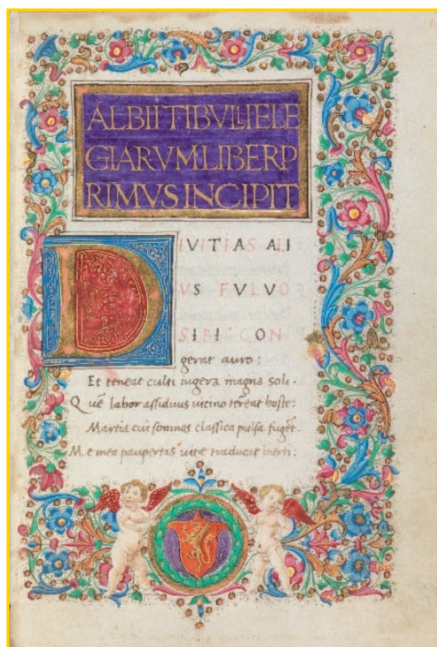 ALBII TIBVLLI ELE
GIARVM LIBER P
RIMVS INCIPIT
D
gerat auro:
Et teneat culti iugera magna soli.
Quē labor assiduus uicino terreat hoste:
Martia cui somnos classica pulsa fugēt.
Me mea paupertas uitæ traducat inerti: